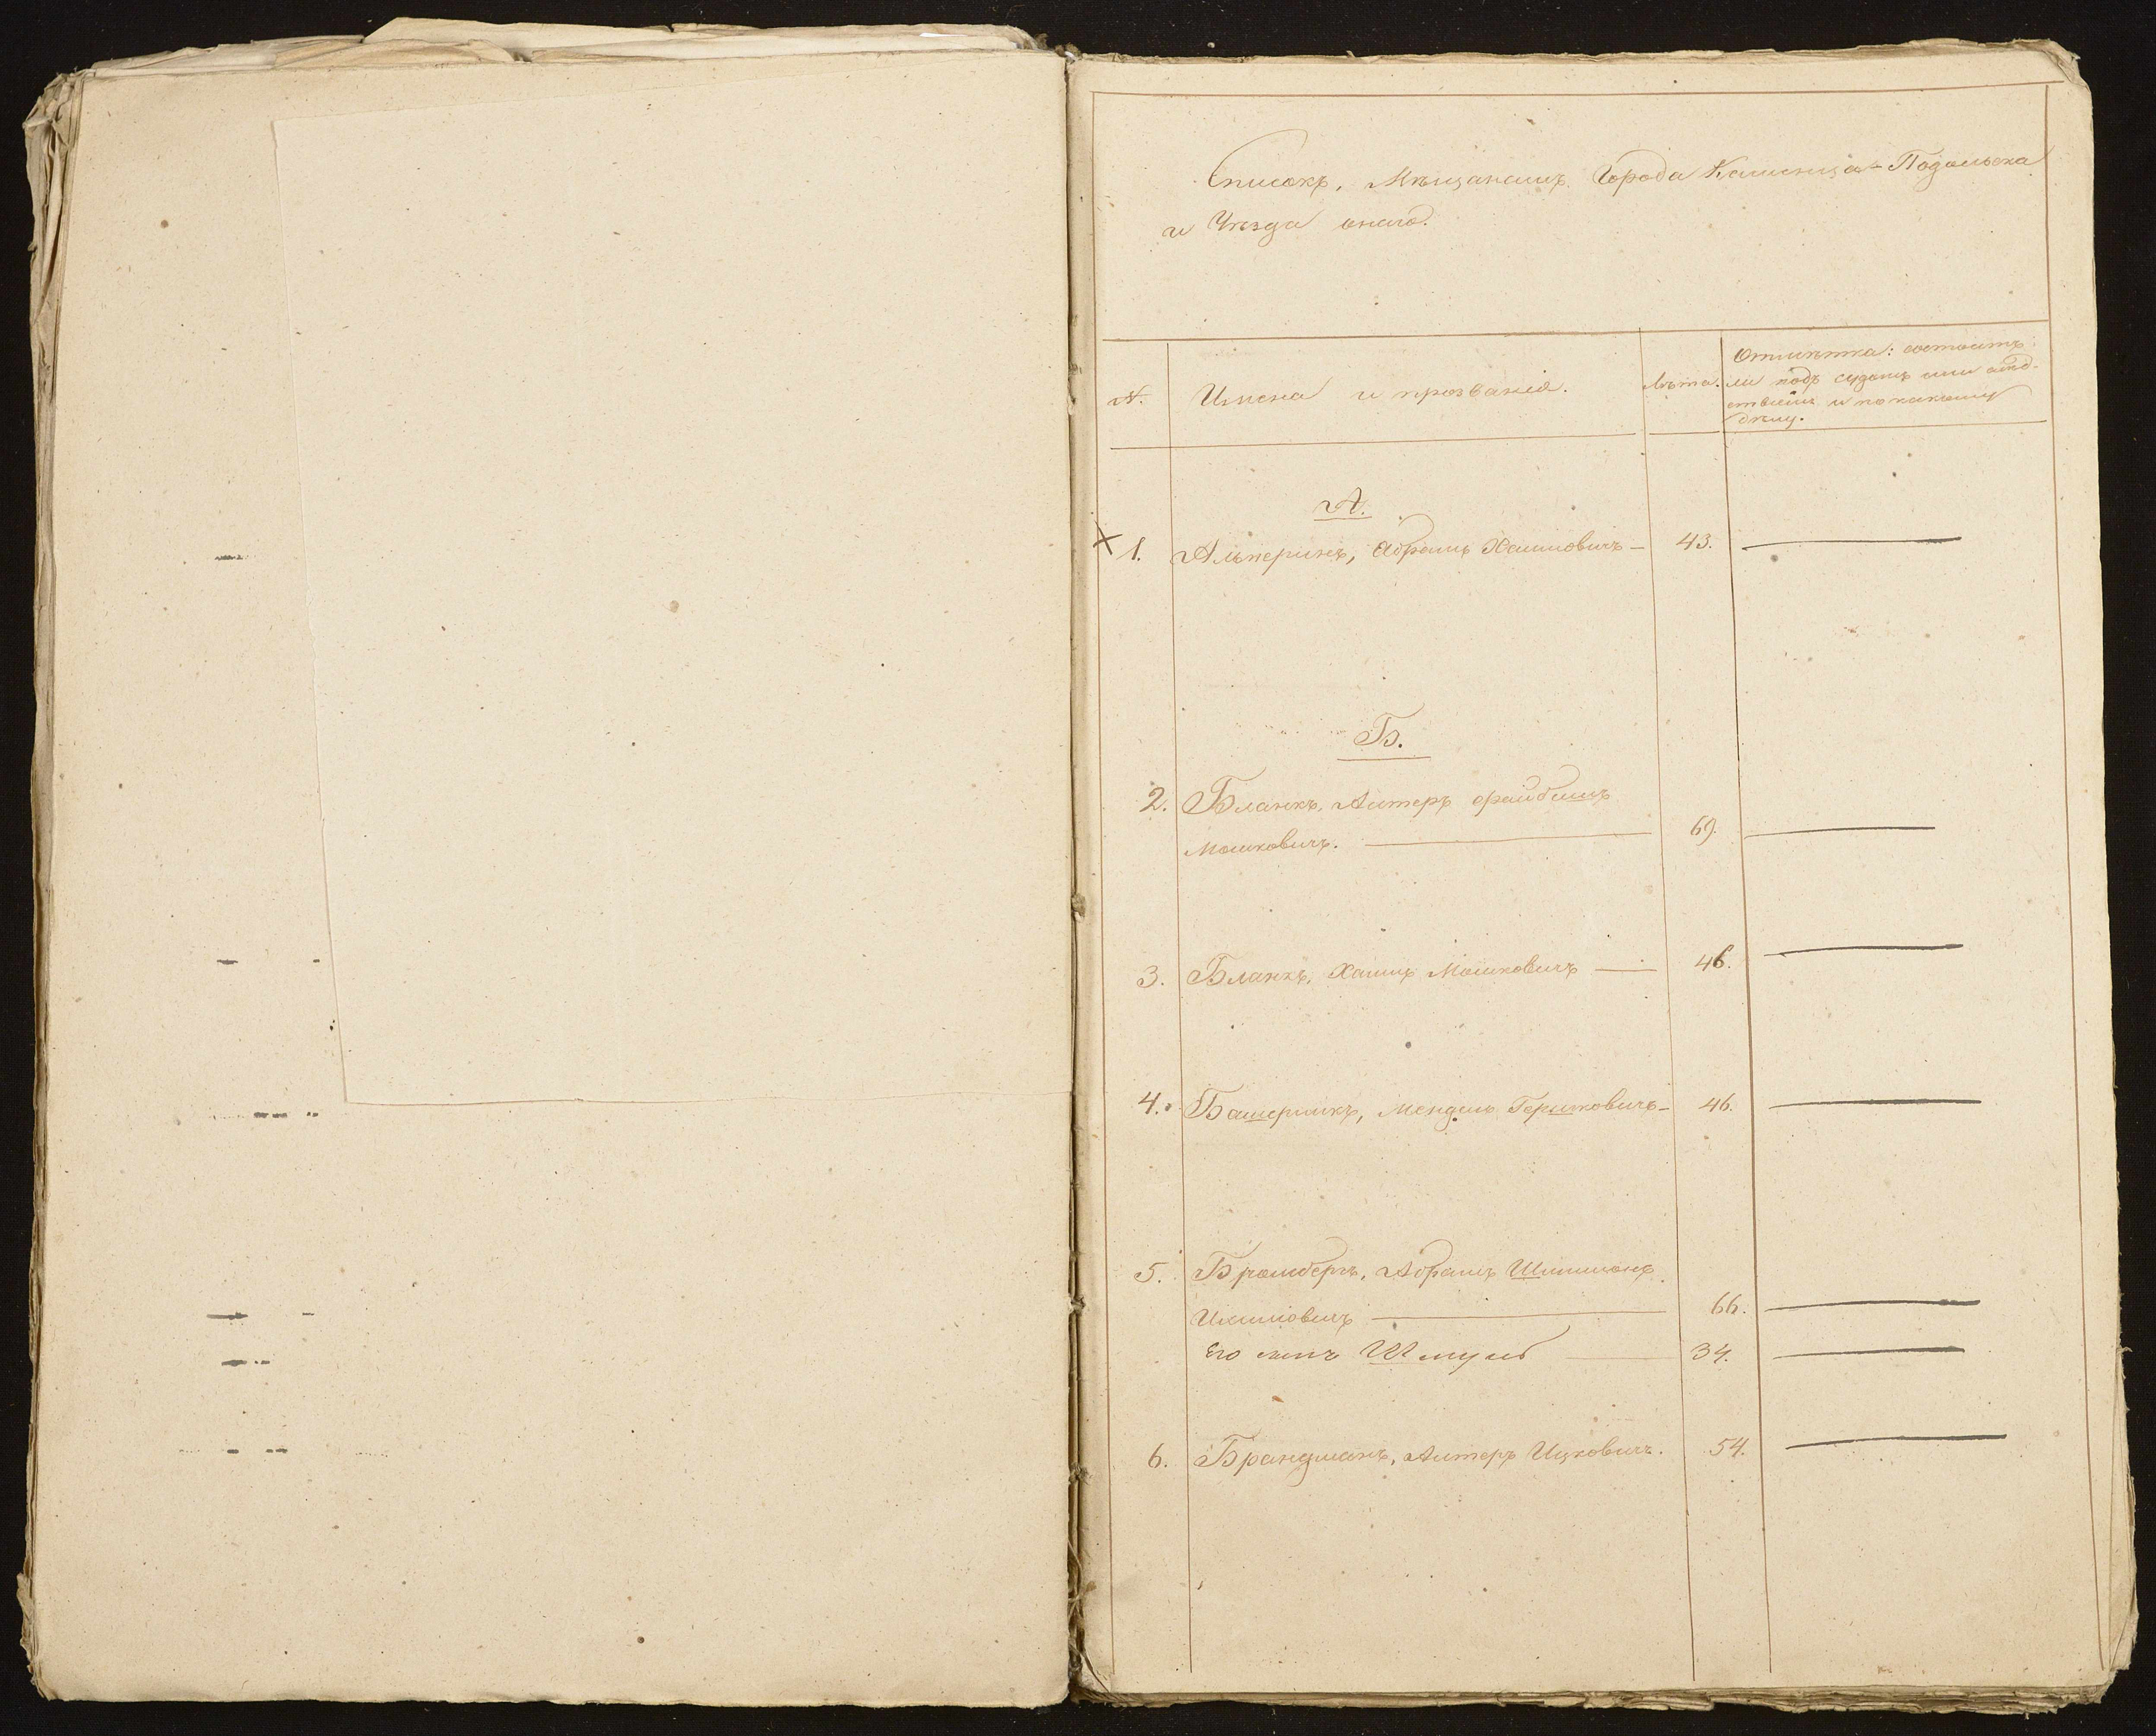 Списокъ, Мѣщанамъ Города Каменца-Подольска
и Уѣзда онаго.
№.
Имена и прозванія.
Лѣта.
Отмѣтка: состоитъ
ли подъ судомъ или слѣд-
ствіемъ и по какому
дѣлу.
А.
1. Альперинъ, Абрамъ Хаимовичъ — 43. —
Б.
2. Бланкъ, Алтеръ Файбишъ
Мошковичъ. — 69. —
3. Бланкъ, Хаимъ Мошковичъ — 46. —
4. Башерникъ, Мендель Гершковичъ — 46. —
5. Бромбергъ, Абрамъ Шлимонъ
— 66. —
Его сынъ Шмуль — 34. —
6. Брандманъ, Алтеръ Ицковичъ. 54. —